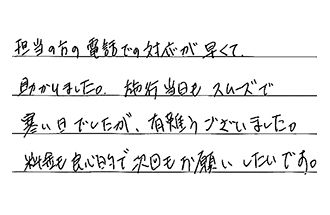 担当の方の電話での対応が早くて、
助かりました。施行当日もスムーズで
寒い日でしたが、有難うございました。
料金も良心的で次回もお願いしたいです。